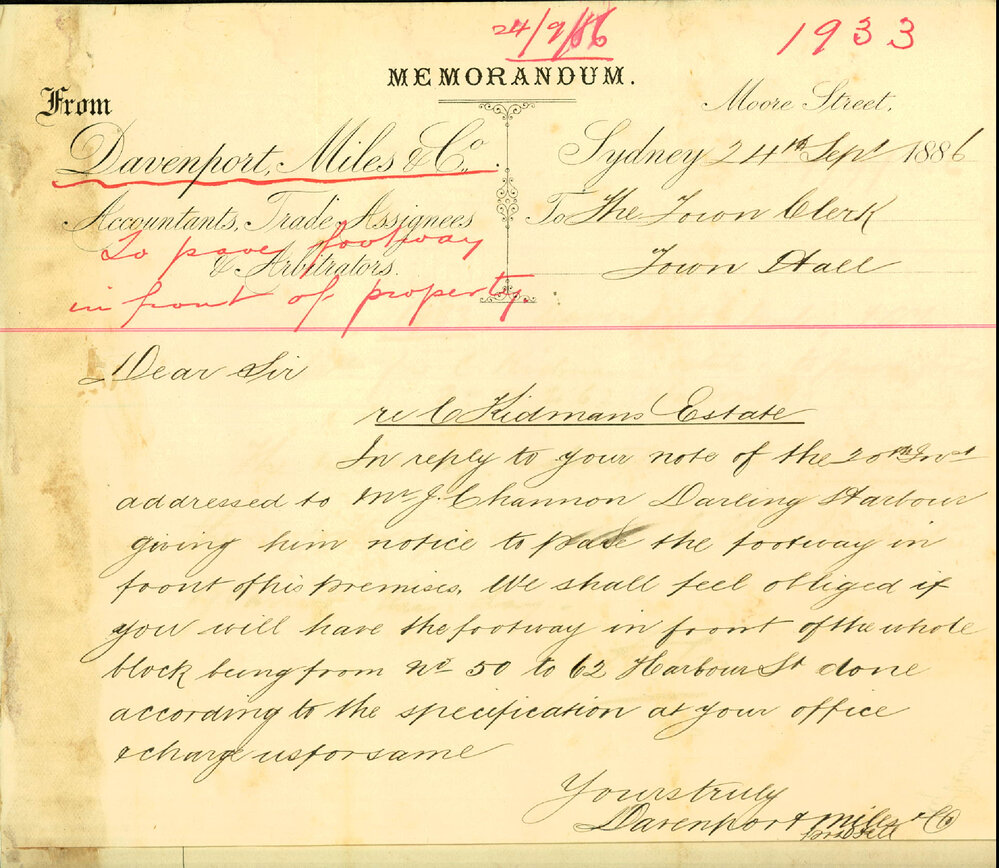 24/9/86
1933
MEMORANDUM.
From
Moore Street,
Davenport, Miles & Co.
Sydney 24th Sept 1886
Accountants, Trade Assignees
To The Town Clerk
& Arbitrators.
Town Hall
To pave footway
in front of property.
Dear Sir
re C Kidmans Estate
In reply to your note of the 20th Inst
addressed to Mr J. Channon Darling Harbour
giving him notice to pave the footway in
front of his premises. We shall feel obliged if
you will have the footway in front of the whole
block being from No 50 to 62 Harbour St done
according to the specification at your office
& charge us for same
Yours truly
Davenport Miles & Co